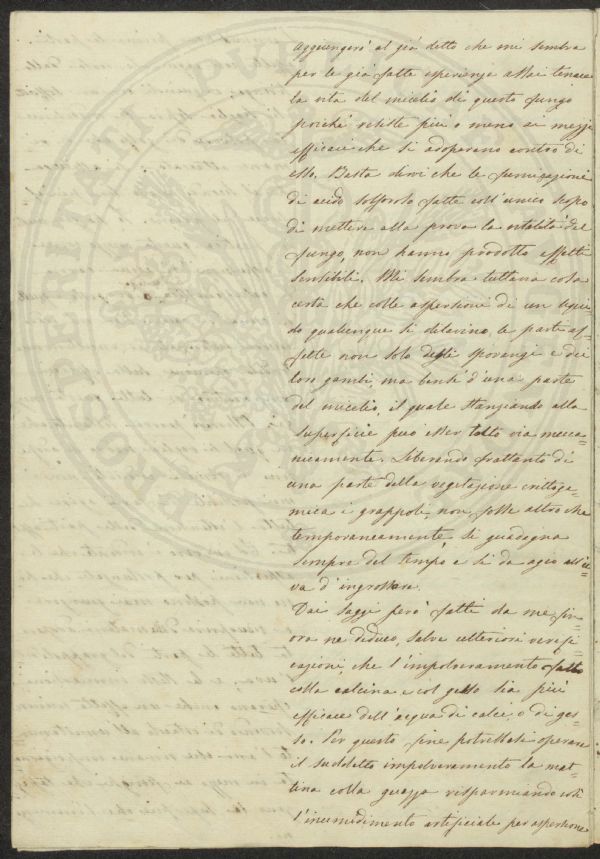 Aggiungerò al già detto che mi sembra
per le già fatte esperienze assai tenace
la vita del micelio di questo fungo
poiché resiste più o meno ai mezzi
efficaci che si adoperano contro di
esso. Basta dirvi che le fumigazioni
di acido solforoso fatte coll'unico scopo
di mettere alla prova la vitalità del
fungo, non hanno prodotto effetti
sensibili. Mi sembra tuttavia cosa
certa che colle aspersioni di un liqui=
do qualunque si dilavino le parti af=
fette non solo degli sporangi e dei
loro gambi, ma bensì d'una parte
del micelio, il quale stanziando alla
superficie può esser tolto via mecca
nicamente. Liberando frattanto di
una parte della vegetazione crittoga=
mica i grappoli, non fosse altro che
temporaneamente si guadagna
sempre del tempo e si dà agio all'u=
va d'ingrossare.
Dai saggi però fatti da me fin=
ora ne deduco, salve ulteriori verifi=
cazioni, che l'impolveramento fatto
colla calcina e col gesso sia più
efficace dell'acqua di calce, o di ges=
so. Per questo fine potrebbesi operare
il suddetto impolveramento la mat=
tina colla guazza risparmiando così
l'inumidimento artificiale per aspersione